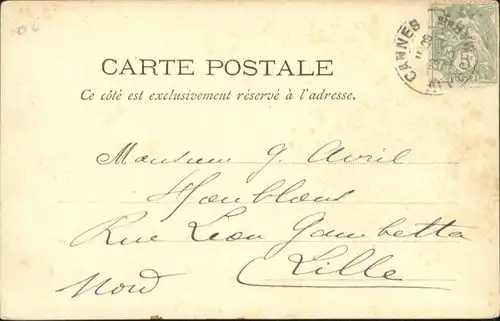 CARTE POSTALE
Ce côté est exclusivement réservé à l'adresse.
CANNES
5
Monsieur G. Avril
Houblons
Rue Léon Gambetta
Lille
Nord